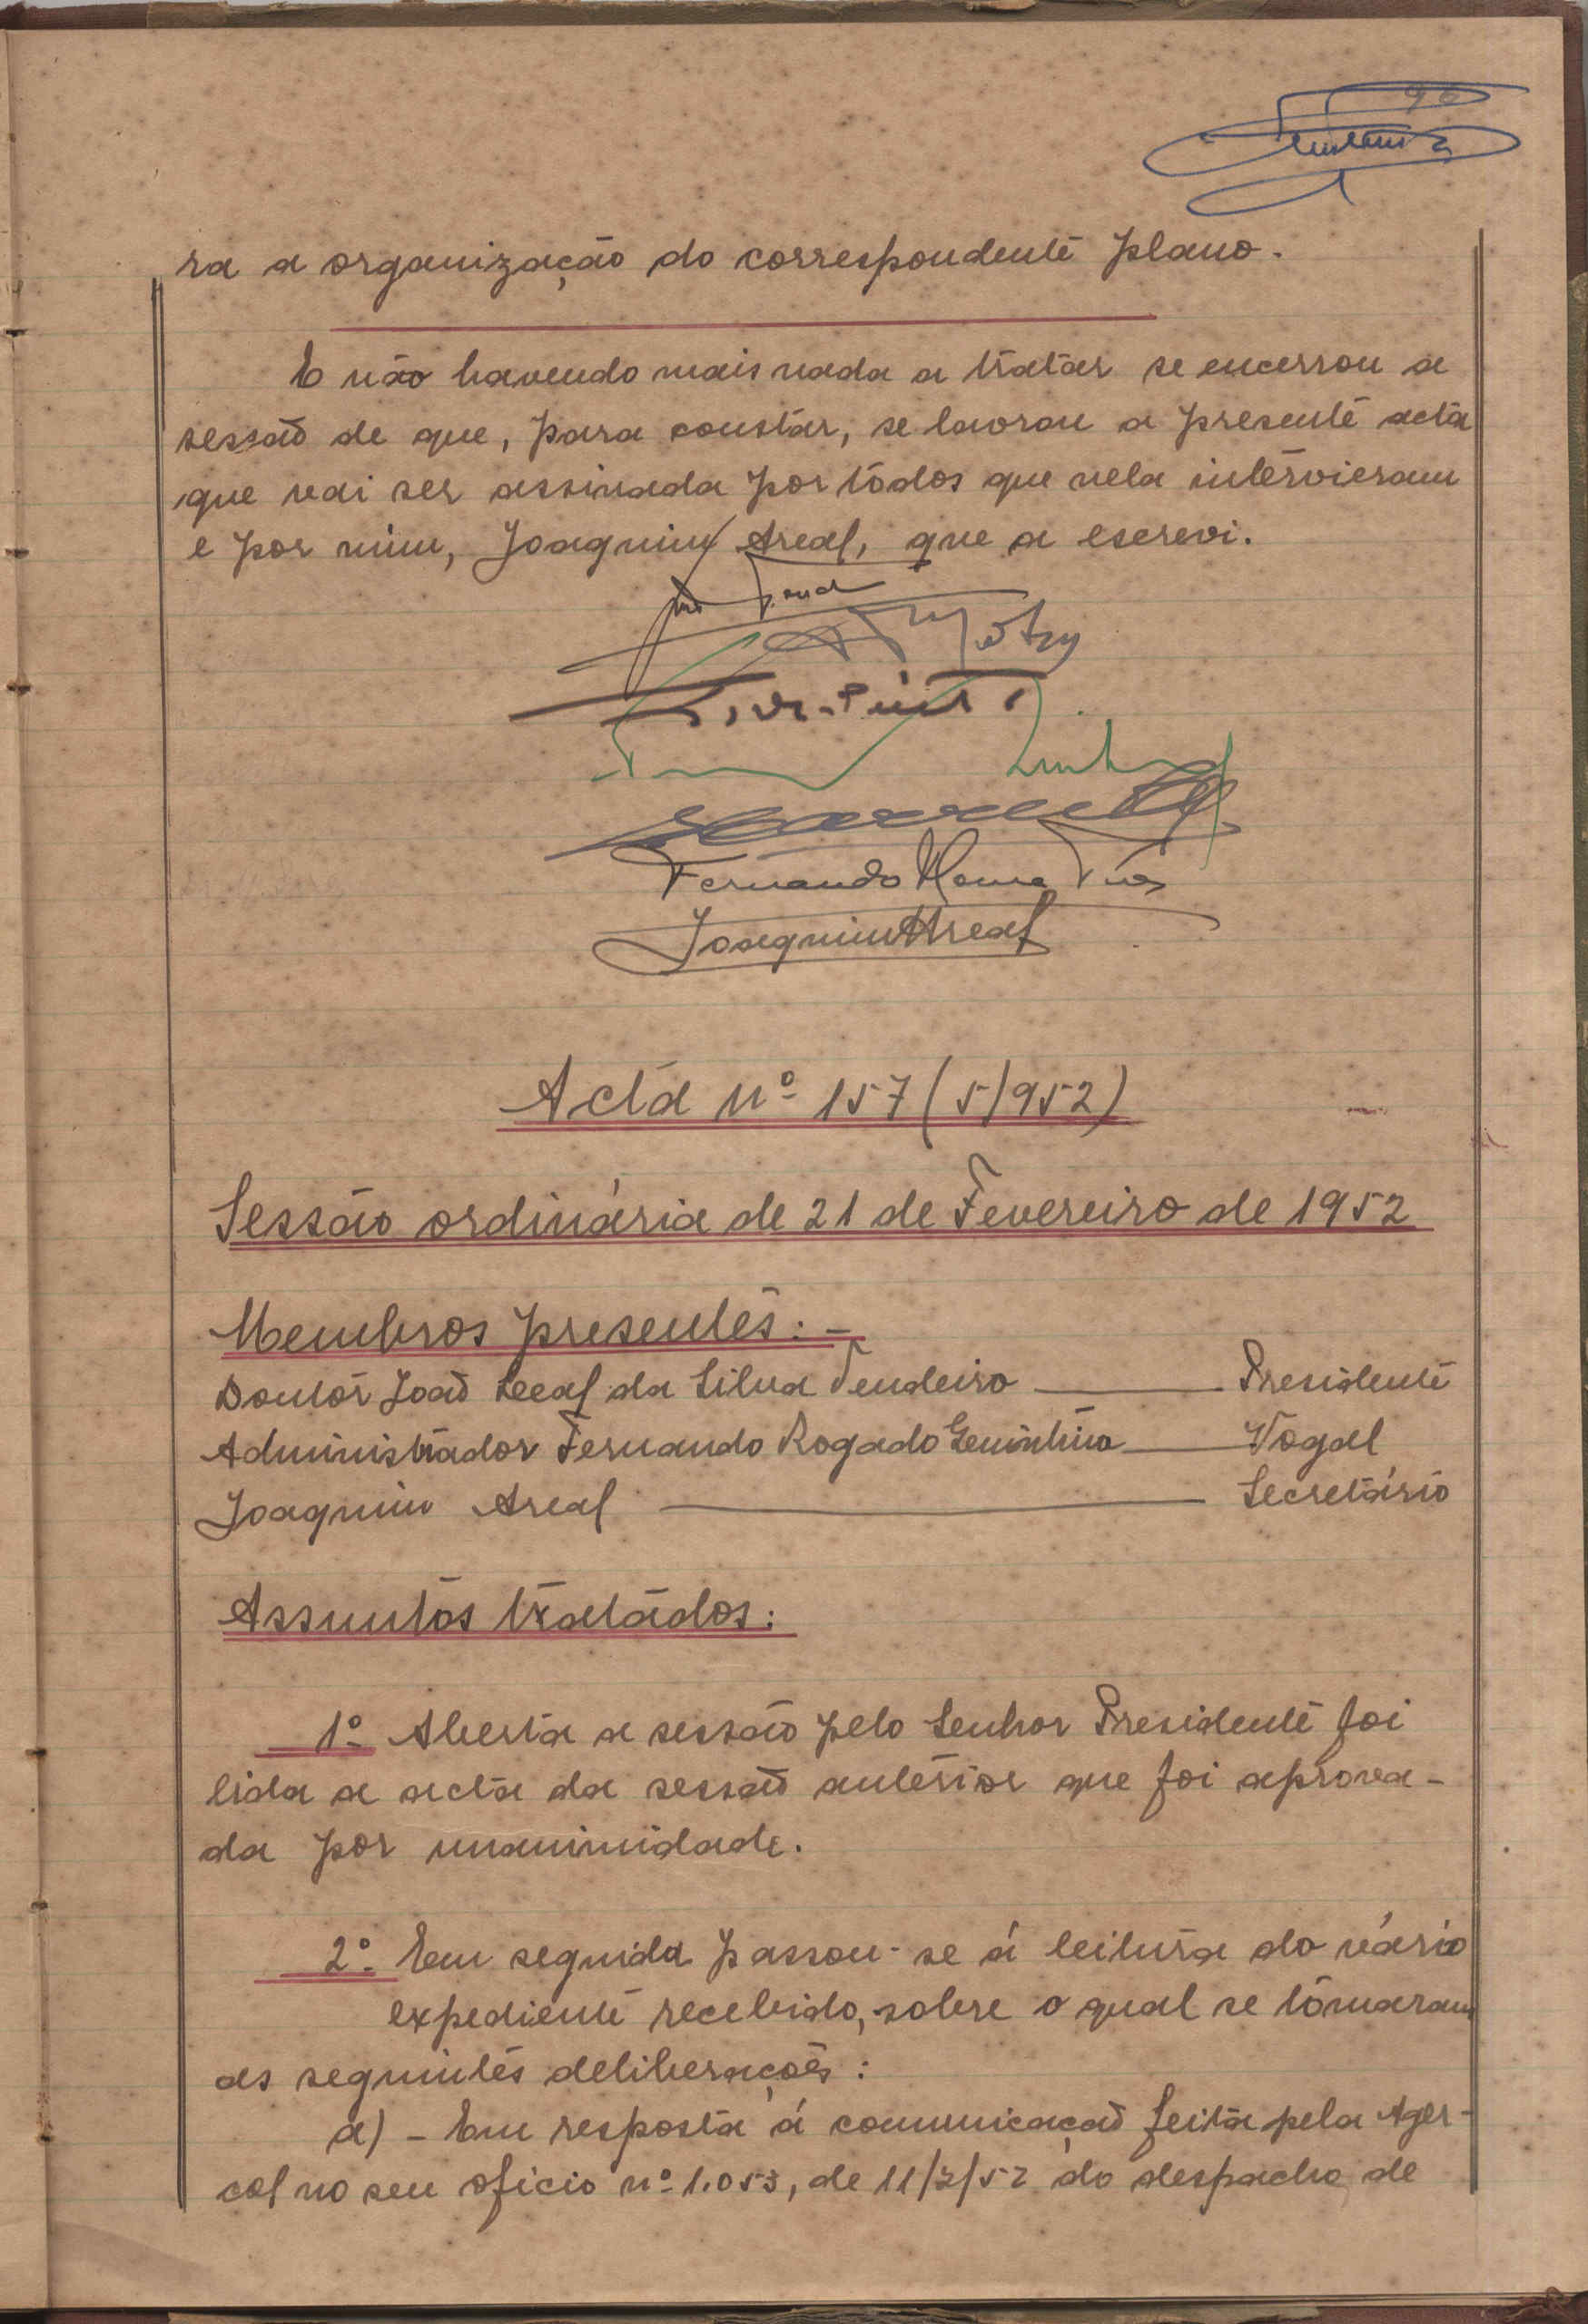 96
ra a organização do correspondente plano.
E não havendo mais nada a tratar se encerrou a
sessão de que, para constar, se lavrou a presente acta
que vai ser assinada por todos que nela intervieram
e por mim, Joaquim Areal, que a escrevi.
Fernando
Joaquim Areal
Acta nº 157 (5/952)
Sessão ordinária de 21 de Fevereiro de 1952
Membros presentes: -
Doutor João Leal da Silva Tendeiro — Presidente
Administrador Fernando Rogado Quintino — Vogal
Joaquim Areal — Secretário
Assuntos tratados:
1º Aberta a sessão pelo Senhor Presidente foi
lida a acta da sessão anterior que foi aprova-
da por unanimidade.
2º Em seguida passou-se á leitura do vário
expediente recebido, sobre o qual se tomaram
as seguintes deliberações:
a) - Em resposta á comunicação feita pela Ager-
col no seu oficio nº 1.053, de 11/2/52 do despacho de